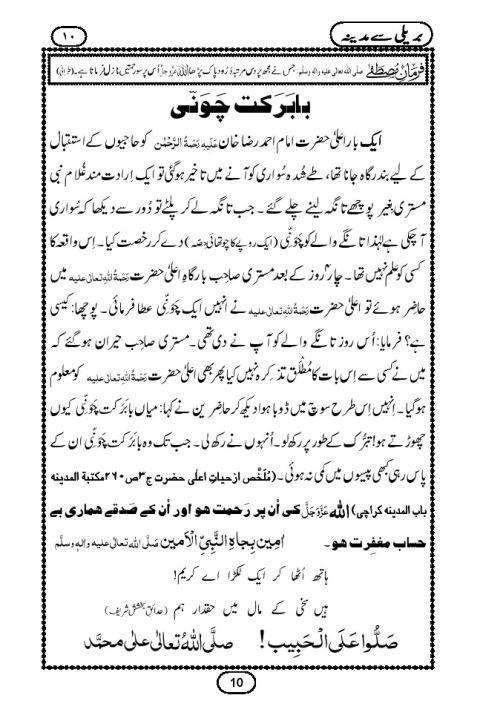 بریلی سے مدینہ
۱۰
فرمانِ مصطفٰے صلی اللہ تعالٰی علیہ والہٖ وسلم: جس نے مجھ پر دس مرتبہ دُرُود پاک پڑھا اللہ عزوجل اُس پر سو رحمتیں نازل فرماتا ہے۔ (طبرانی)
بابَرَکت چَوَنّی
ایک بار اعلیٰ حضرت امام احمد رضا خان عَلَیہِ رَحمۃُ الرَّحمٰن کو حاجیوں کے استقبال
کے لیے بندرگاہ جانا تھا، طے شُدہ سُواری کو آنے میں تاخیر ہو گئی تو ایک اِرادت مند غُلام نبی
مستری بِغیر پوچھے تانگہ لینے چلے گئے ۔ جب تانگہ لے کر پلٹے تو دُور سے دیکھا کہ سُواری
آ چکی ہے لہٰذا تانگے والے کو چَوَنِّی (ایک روپے کا چوتھائی حصہ) دے کر رخصت کیا۔ اِس واقعہ کا
کسی کو علم نہیں تھا۔ چار روز کے بعد مستری صاحِب بارگاہِ اعلیٰ حضرت رَحْمَۃُ اللہِ تعالیٰ علیہ میں
حاضِر ہوئے تو اعلیٰ حضرت رَحْمَۃُ اللہِ تعالیٰ علیہ نے انہیں ایک چَوَنِّی عطا فرمائی۔ پوچھا: کیسی
ہے؟ فرمایا: اُس روز تانگے والے کو آپ نے دی تھی۔ مستری صاحِب حیران ہو گئے کہ
میں نے کسی سے اِس بات کا مُطْلَق تذکِرہ نہیں کیا پھر بھی اعلیٰ حضرت رَحْمَۃُ اللہِ تعالیٰ علیہ کو معلوم
ہو گیا۔ اِنہیں اِس طرح سوچ میں ڈوبا ہوا دیکھ کر حاضِرین نے کہا: میاں بابَرَکت چَوَنِّی کیوں
چھوڑتے ہو! تبرُّک کے طور پر رکھ لو۔ اُنہوں نے رکھ لی۔ جب تک وہ بابَرَکت چَوَنِّی ان کے
پاس رہی کبھی پیسوں میں کمی نہ ہوئی۔ (مُلَخَّص از حیاتِ اعلٰی حضرت ج۳ ص۲۶۰ مکتبة المدینه
باب المدینه کراچی) اللہ عَزَّوَجَلَّ کی اُن پر رَحمت ہو اور اُن کے صَدقے ہماری بے
حساب مغفِرت ہو۔ اٰمِین بِجاہِ النَّبِیِّ الْاَمین صَلَّی اللہُ تعالیٰ علیہ واٰلہٖ وسلَّم
ہاتھ اُٹھا کر ایک ٹکڑا اے کریم!
ہیں سخی کے مال میں حقدار ہم (حدائقِ بخشش شریف)
صَلُّوا عَلَی الْحَبِیب! صلَّی اللہُ تَعالٰی علٰی محمَّد
10